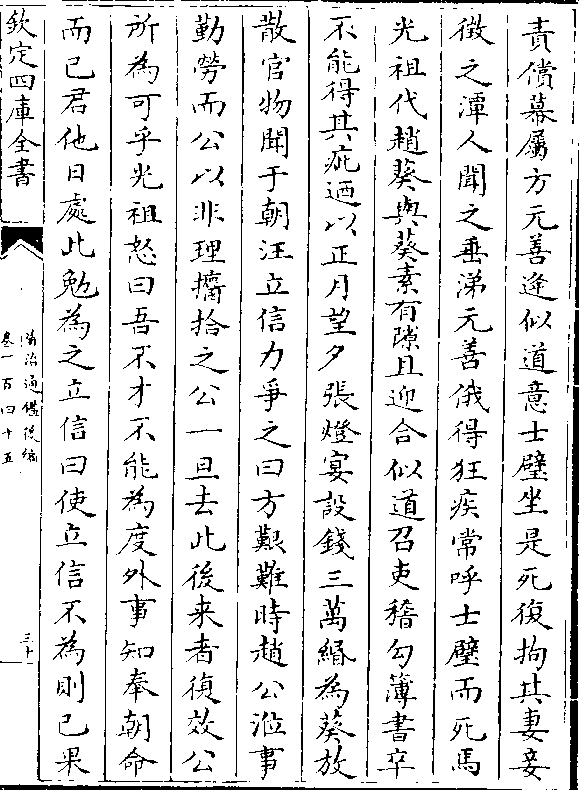 責償幕屬方元善逢似道意士璧坐是死復拘其妻妾
徵之潭人聞之垂涕元善俄得狂疾常呼士璧而死馬
光祖代趙葵與葵素有隙且迎合似道召吏稽勾簿書卒
不能得其疵迺以正月望夕張燈宴設錢三萬緡為葵放
散官物聞于朝汪立信力爭之曰方艱難時趙公涖事
勤勞而公以非理攟拾之公一旦去此後来者復效公
所為可乎光祖怒曰吾不才不能為度外事知奉朝命
而已君他日處此勉為之立信曰使立信不為則已果
欽定四庫全書
資治通鑑後編
卷一百四十五
三十